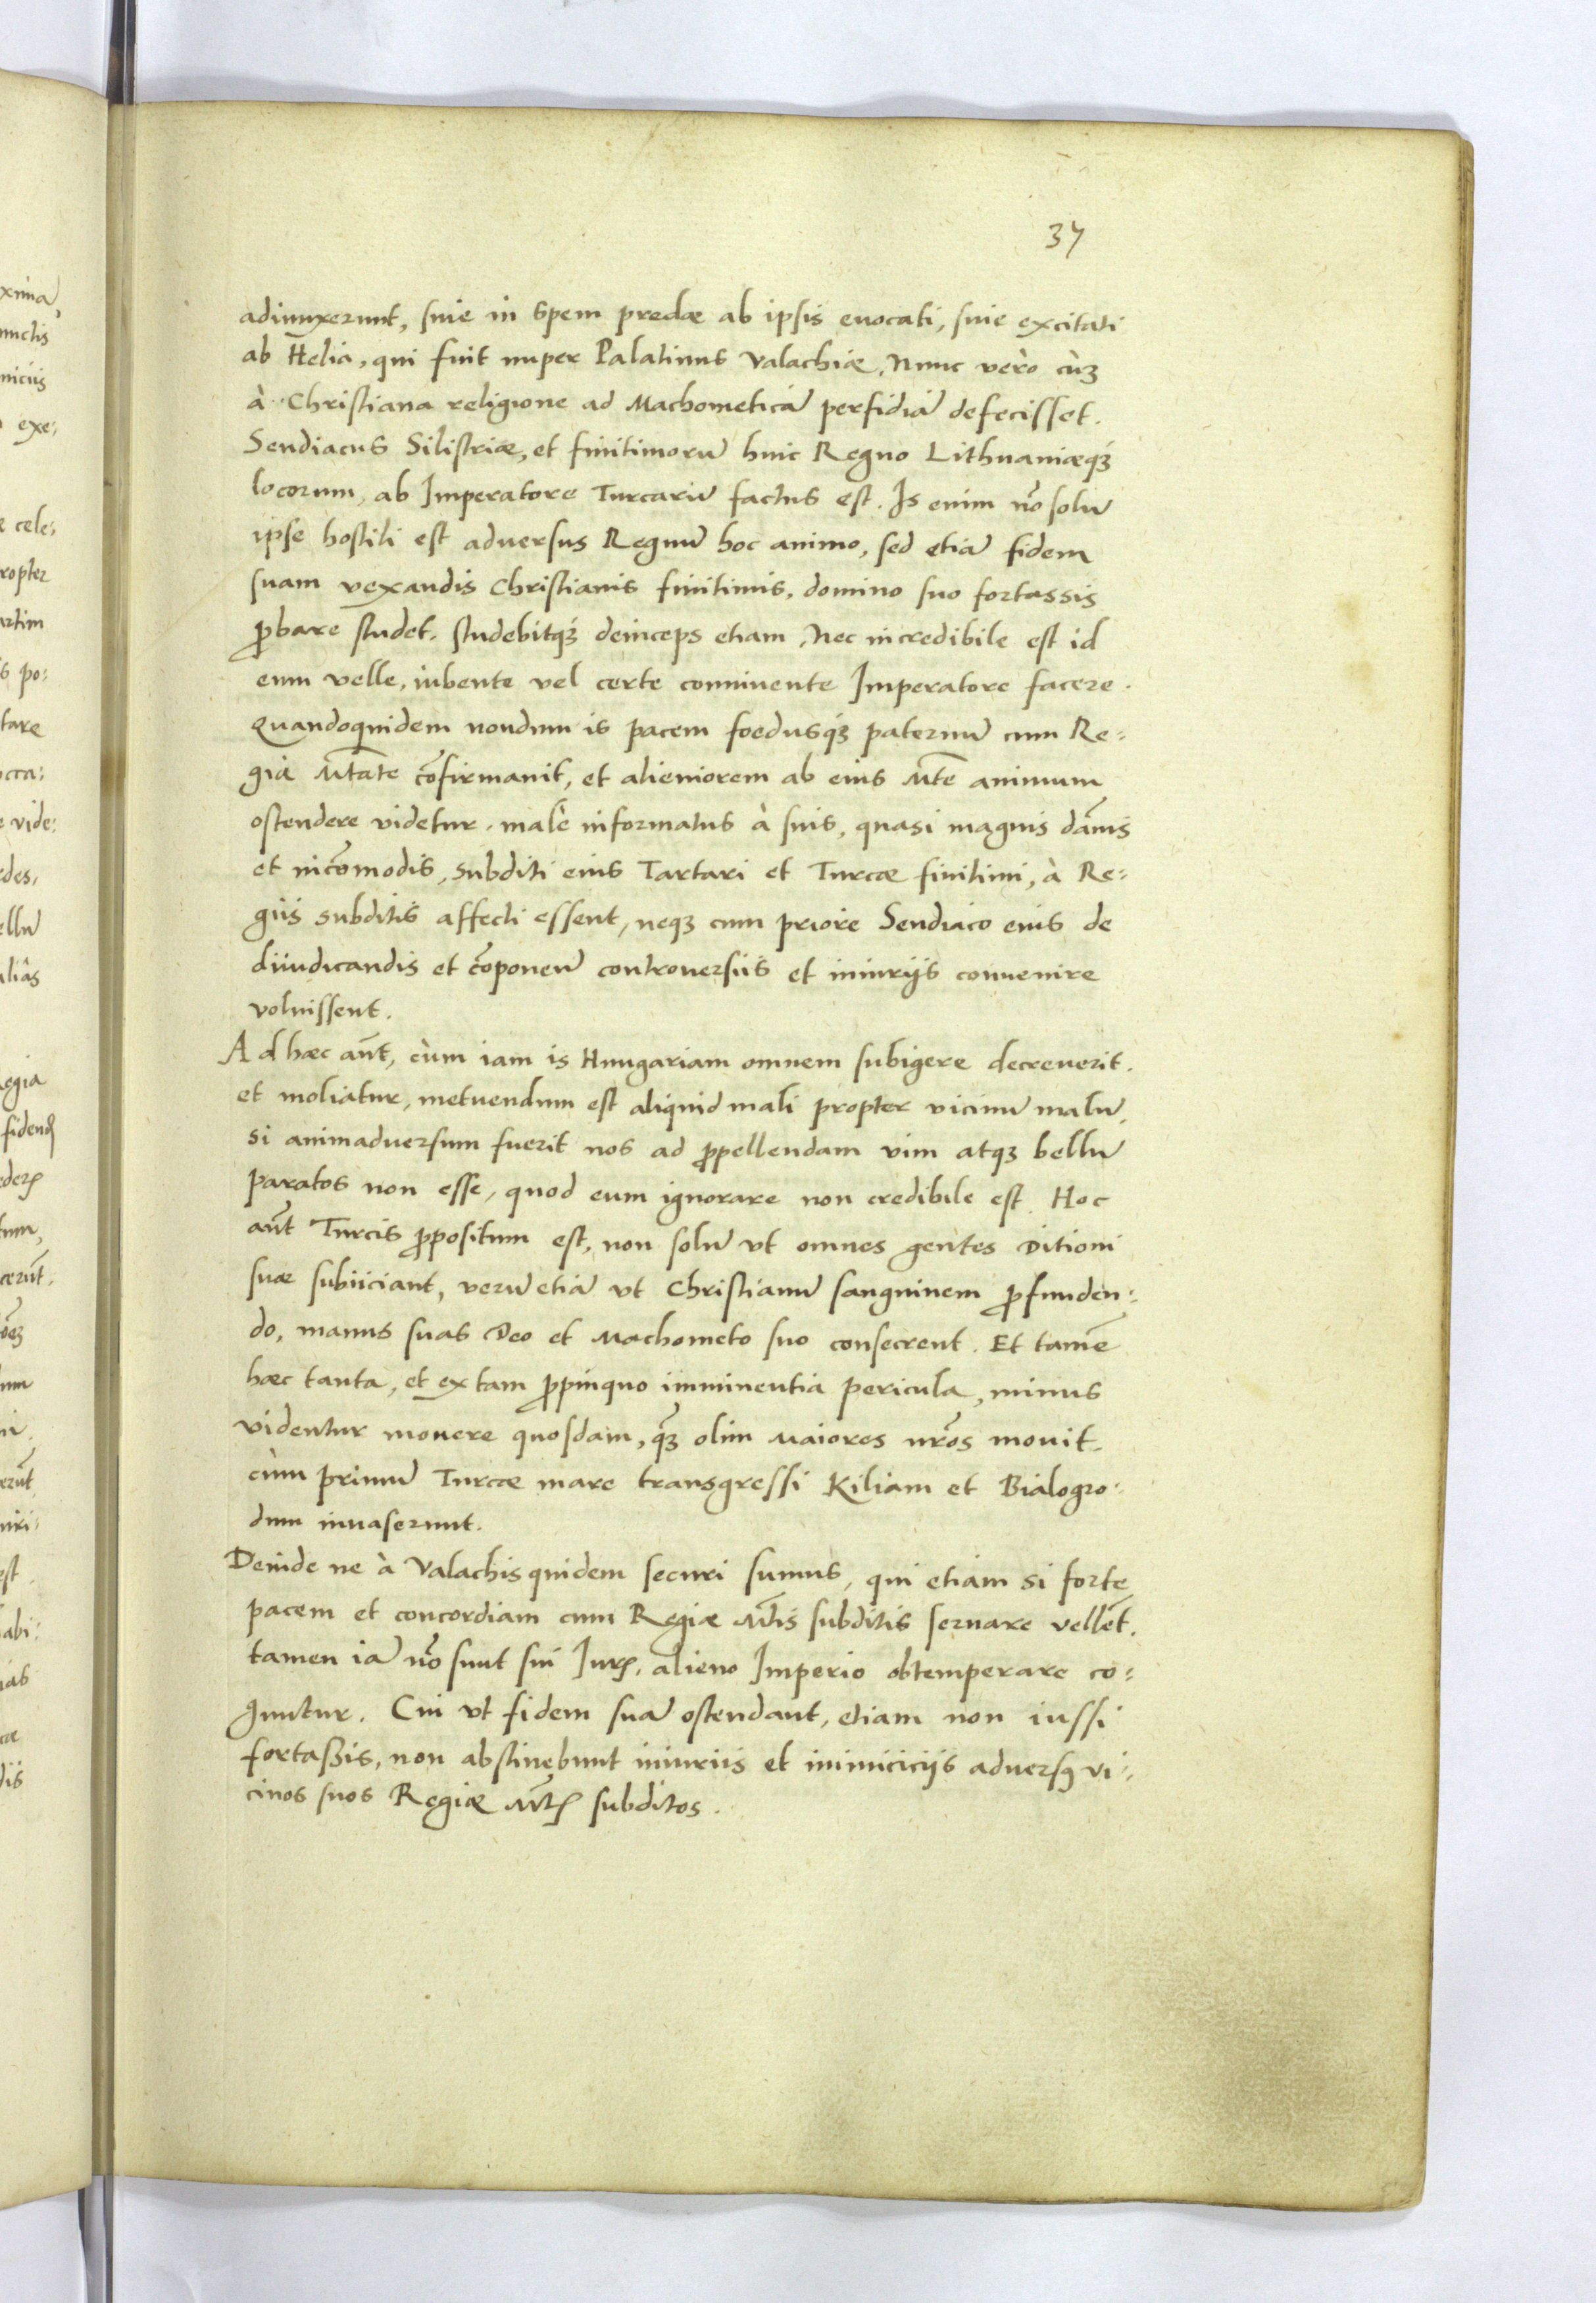 37
adiunxerunt, siue in spem predæ ab ipsis euocati, siue excitati
ab Helia, qui fuit nuper Palatinus Valachiæ, Nunc verò cùm
à Christiana religione ad Machometicā perfidiā defecisset.
Sendiacus Silistriæ, et finitimorū huic Regno Lithuaniæqꝫ
locorum, ab Imperatore Turcarū factus est. Is enim nō solū
ipse hostili est adversus Regnū hoc animo, sed etiā fidem
suam vexandis Christianis finitimis, domino suo fortassis
ꝓbare studet, studebitqꝫ deinceps etiam, Nec incredibile est id
eum velle, iubente vel certe conniuente Imperatore facere.
Quandoquidem nondum is pacem foedusqꝫ paternū cum Re:
gia Mtate cōfirmauit, et alieniorem ab eius Mte animum
ostendere videtur, malè informatus à suis, quasi magnis dānis
et incōmodis, subditi eius Tartari et Turcæ finitimi, à Re:
giis subditis affecti essent, neqꝫ cum priore Sendiaco eius de
diiudicandis et cōponen̄ controuersiis et iniurijs conuenire
voluissent.
Ad hæc aūt, cùm iam is Hungariam omnem subigere decreuerit.
et moliatur, metuendum est aliquid mali propter vicinū malū,
si animadversum fuerit nos ad ꝓpellendam vim atqꝫ bellū
paratos non esse, quod eum ignorare non credibile est. Hoc
aūt Turcis ꝓpositum est, non solū vt omnes gentes Ditioni
suæ subiiciant, verū etiā vt Christianū sanguinem ꝓfunden:
do, manus suas Deo et Machometo suo consecrent. Et tamē
hæc tanta, et ex tam ꝓpinquo imminentia pericula, minus
videntur mouere quosdam, qꝫ̄ olim Maiores nr̄os mouit,
cùm primū Turcæ mare transgressi Kiliam et Bialogro:
dum inuaserunt.
Deinde ne à Valachis quidem securi sumus, qui etiam si forte
pacem et concordiam cum Regiæ Mtis subditis seruare vellēt.
tamen iā nō sunt sui Iurꝭ, alieno Imperio obtemperare co:
guntur. Cui vt fidem suā ostendant, etiam non iussi
fortaßis, non abstinebunt iniuriis et inimiciciis adversꝰ vi:
cinos suos Regiæ Mtꝭ subditos.